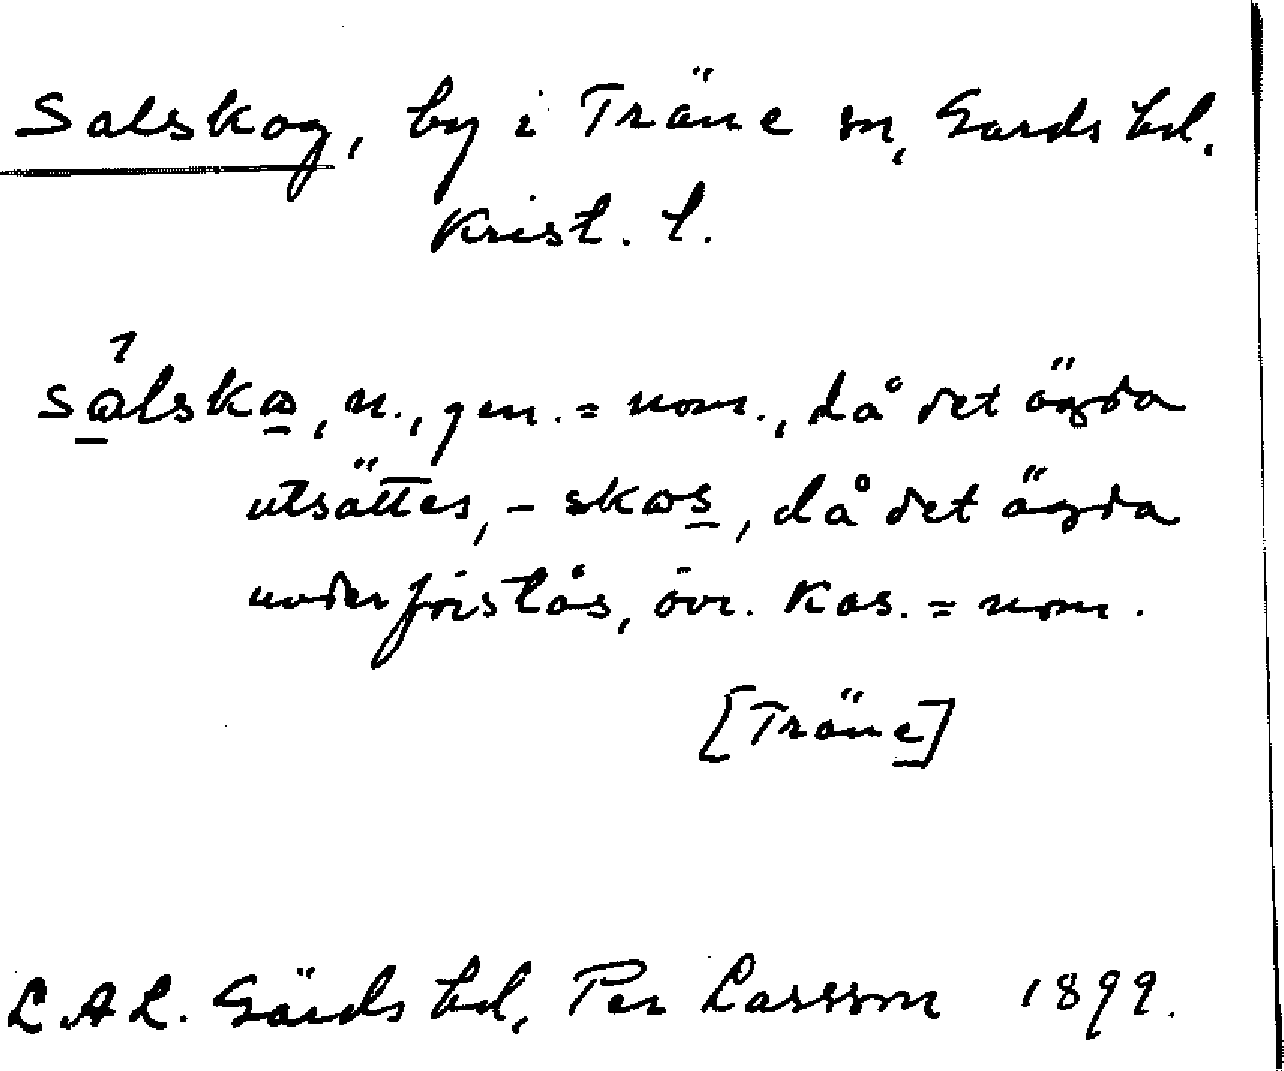 Salskog, by i Träne sn, Gärds hd.
Krist. l.
sálskɷ, n., gen. = nom., då det ägda
utsättes, - skɷs, då det ägda
underförstås, övr. kas. = nom.
[Träne]
L.A.L. Gärds hd, Per Larsson 1899.